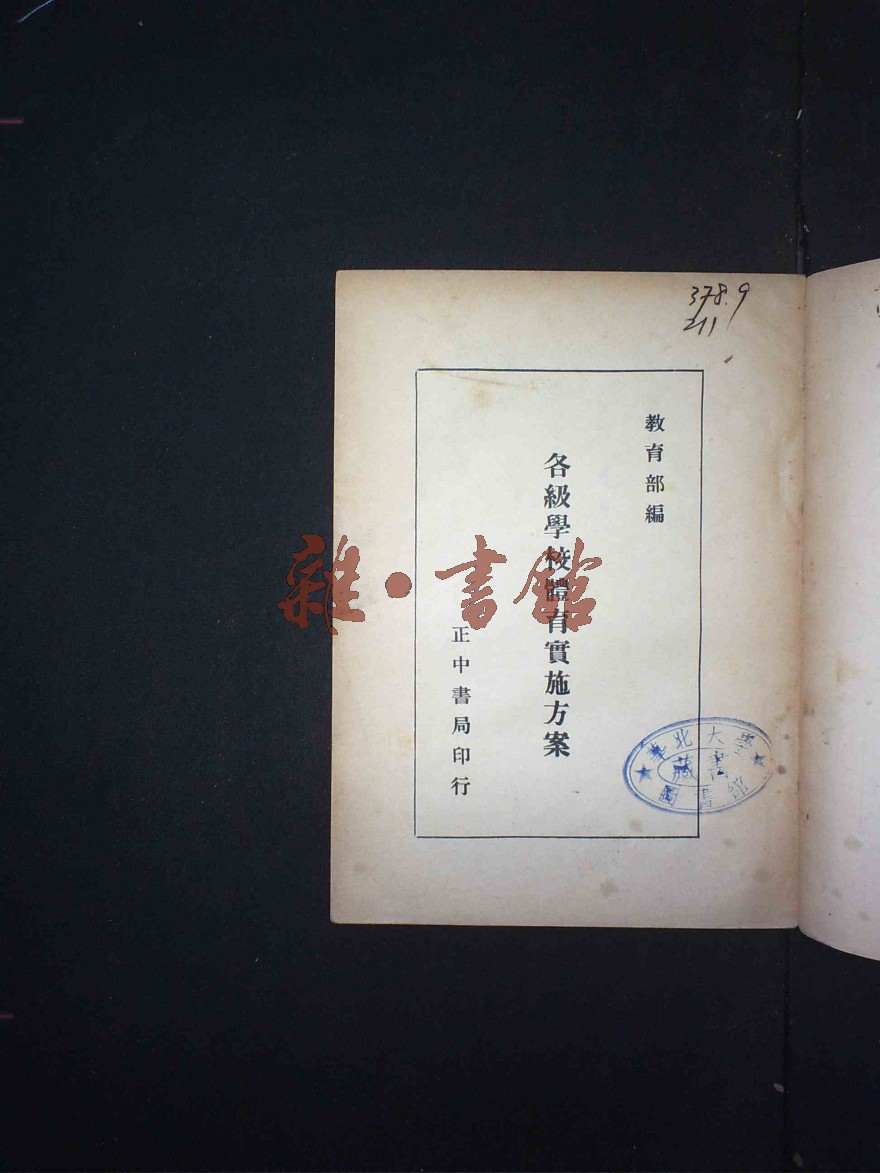 378.9
211
教育部編
各級學校體育實施方案
正中書局印行
華北大學
藏書
圖書館
雜·書館